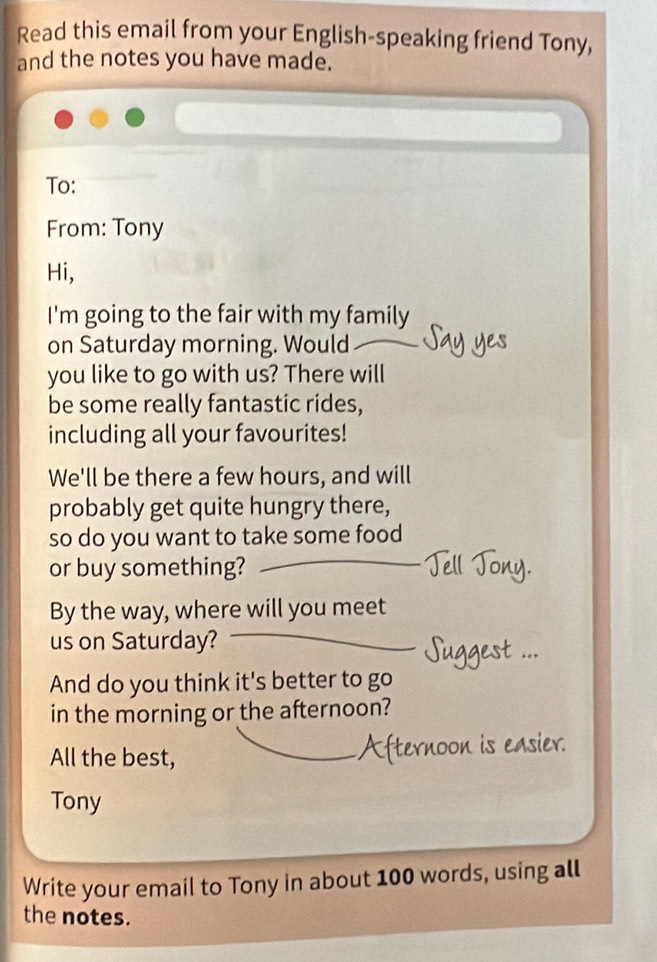 Read this email from your English-speaking friend Tony,
and the notes you have made.
To:
From: Tony
Hi,
I'm going to the fair with my family
on Saturday morning. Would
Say yes
you like to go with us? There will
be some really fantastic rides,
including all your favourites!
We'll be there a few hours, and will
probably get quite hungry there,
so do you want to take some food
or buy something?
Tell Tony.
By the way, where will you meet
us on Saturday?
Suggest ...
And do you think it's better to go
in the morning or the afternoon?
Afternoon is easier.
All the best,
Tony
Write your email to Tony in about 100 words, using all
the notes.